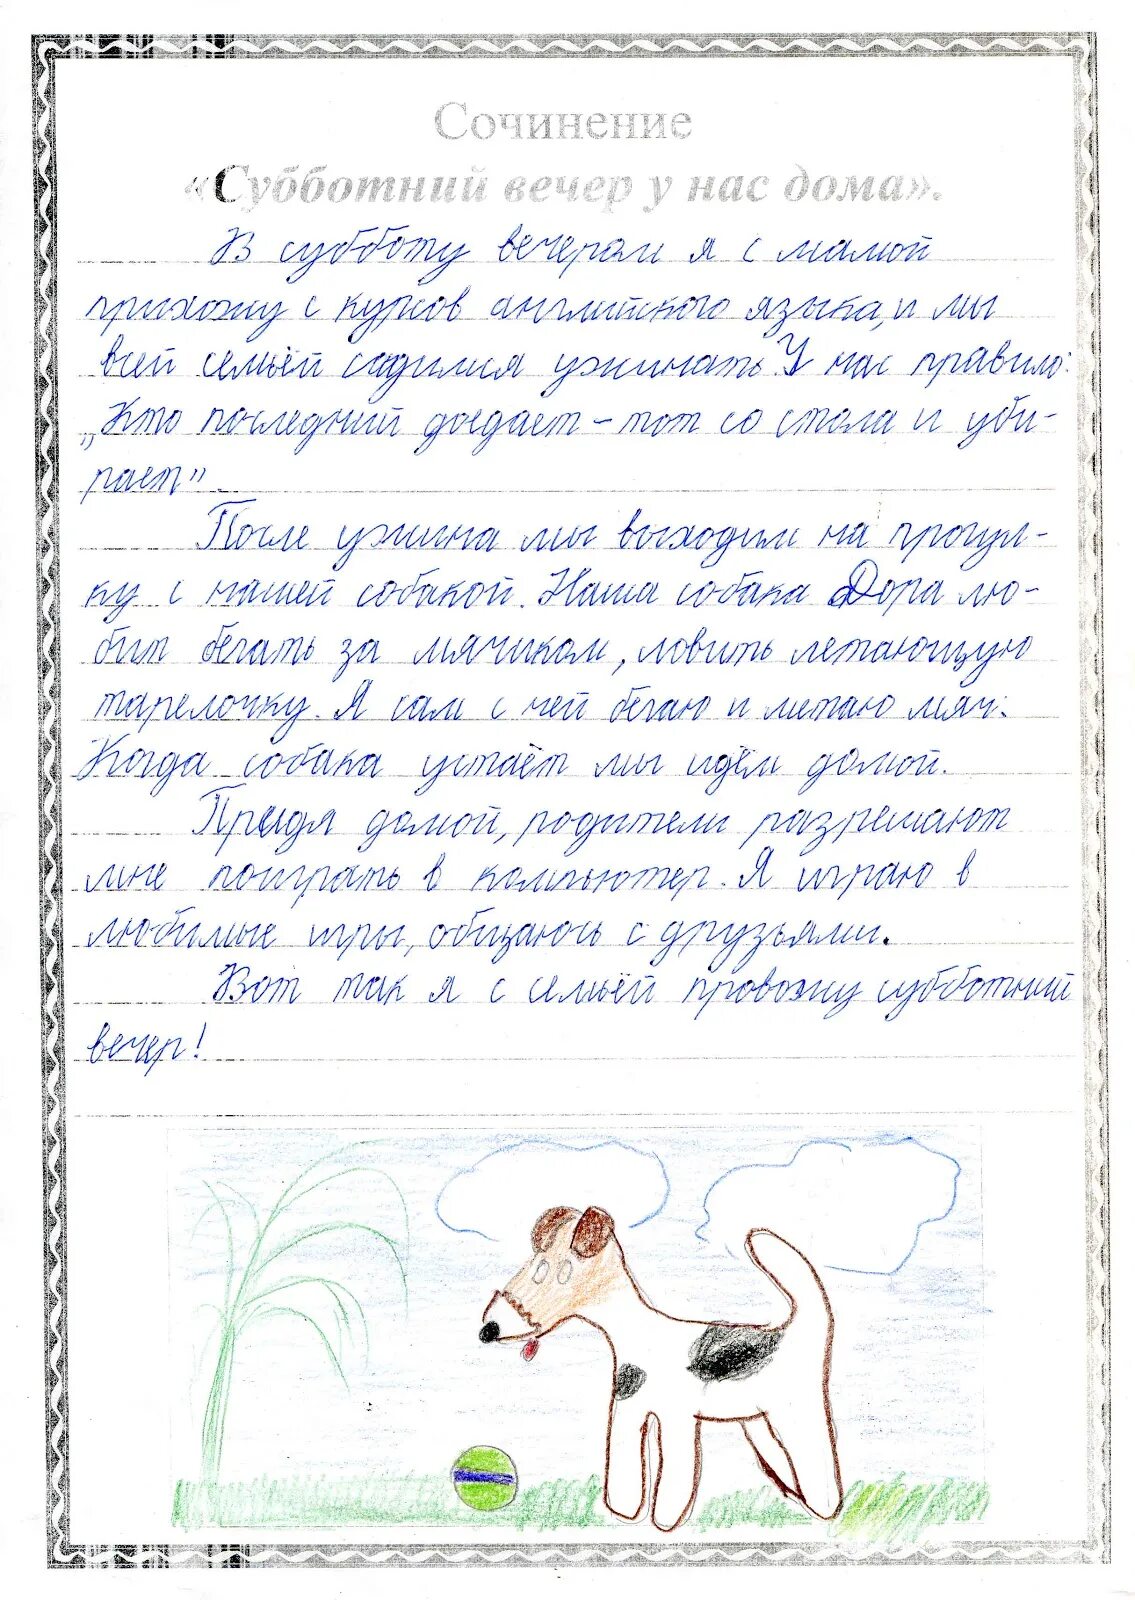 Сочинение
«Субботний вечер у нас дома».
В субботу вечерам я с мамой
прихожу с курсов английского языка, и мы
всей семьёй садимся ужинать. У нас правило:
„Кто последний доедает – тот со стола и уби-
рает”.
После ужина мы выходим на прогул-
ку с нашей собакой. Наша собака Дора лю-
бит бегать за мячиком, ловить летающую
тарелочку. Я сам с ней бегаю и метаю мяч.
Когда собака устаёт мы идём домой.
Придя домой, родители разрешают
мне поиграть в компьютер. Я играю в
любимые игры, общаюсь с друзьями.
Вот так я с семьёй провожу субботний
вечер!